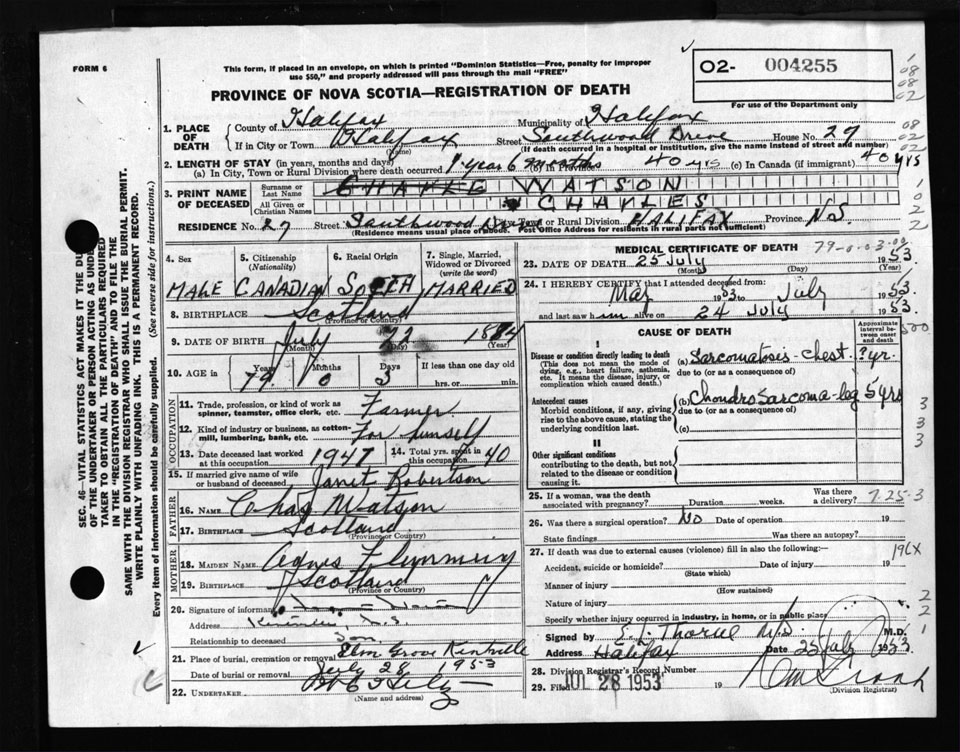 FORM 6
This form, if placed in an envelope, on which is printed "Dominion Statistics—Free, penalty for improper
use $50," and properly addressed will pass through the mail "FREE"
O2- 004255
For use of the Department only
PROVINCE OF NOVA SCOTIA—REGISTRATION OF DEATH
1. PLACE OF DEATH
County of Halifax Municipality of Halifax
If in City or Town Halifax Street Southwood Drive House No. 27
(Name) (If death occurred in a hospital or institution, give the name instead of street and number)
2. LENGTH OF STAY (in years, months and days)
(a) In City, Town or Rural Division where death occurred 1 year 6 months (b) In Province 40 yrs (c) In Canada (if immigrant) 40 yrs
3. PRINT NAME OF DECEASED
Surname or Last Name WATSON
All Given or Christian Names CHARLES
RESIDENCE No. 27 Street Southwood City, Town or Rural Division HALIFAX Province N.S.
(Residence means usual place of abode. Post Office Address for residents in rural parts not sufficient)
SEC. 46—VITAL STATISTICS ACT MAKES IT THE DU
OF THE UNDERTAKER OR PERSON ACTING AS UNDER
TAKER TO OBTAIN ALL THE PARTICULARS REQUIRED
IN THE "REGISTRATION OF DEATH" AND TO FILE THE
SAME WITH THE DIVISION REGISTRAR WHO SHALL ISSUE THE BURIAL PERMIT.
WRITE PLAINLY WITH UNFADING INK. THIS IS A PERMANENT RECORD.
Every item of information should be carefully supplied. (See reverse side for instructions.)
4. Sex
5. Citizenship (Nationality)
6. Racial Origin
7. Single, Married, Widowed or Divorced (write the word)
MALE CANADIAN SCOTCH MARRIED
8. BIRTHPLACE Scotland
(Province or Country)
9. DATE OF BIRTH July 22 1874
(Month) (Day) (Year)
10. AGE in Years Months Days If less than one day old
79 0 3 hrs. or min.
OCCUPATION
11. Trade, profession, or kind of work as spinner, teamster, office clerk, etc. Farmer
12. Kind of industry or business, as cotten-mill, lumbering, bank, etc. For himself
13. Date deceased last worked at this occupation 1947
14. Total yrs. spent in this occupation 40
15. If married give name of wife or husband of deceased Janet Robertson
FATHER
16. NAME Chas Watson
17. BIRTHPLACE Scotland
(Province or Country)
MOTHER
18. MAIDEN NAME Agnes Flemming
19. BIRTHPLACE Scotland
(Province or Country)
20. Signature of informant
Address N.S.
Relationship to deceased Son
21. Place of burial, cremation or removal Elm Grove Kentville
Date of burial or removal July 28 1953
22. UNDERTAKER
(Name and Address)
MEDICAL CERTIFICATE OF DEATH
23. DATE OF DEATH 25 July 1953
(Month) (Day) (Year)
24. I HEREBY CERTIFY that I attended deceased from:
1953 to July 1953
and last saw him alive on 24 July 1953
CAUSE OF DEATH
Approximate interval between onset and death
I
Disease or condition directly leading to death
(This does not mean the mode of dying, e.g., heart failure, asthenia, etc. It means the disease, injury, or complication which caused death.)
(a) Sarcomatosis - chest. ? yr.
due to (or as a consequence of)
Antecedent causes
Morbid conditions, if any, giving rise to the above cause, stating the underlying condition last.
(b) Chondrosarcoma - leg 5 yrs
due to (or as a consequence of)
(c)
II
Other significant conditions
contributing to the death, but not related to the disease or condition causing it.
25. If a woman, was the death associated with pregnancy? Duration weeks. Was there a delivery?
26. Was there a surgical operation? No Date of operation 19
State findings Was there an autopsy?
27. If death was due to external causes (violence) fill in also the following:—
Accident, suicide or homicide? Date of injury 19
(State which)
Manner of injury
(How sustained)
Nature of injury
Specify whether injury occurred in industry, in home, or in public place
Signed by M.D.
Address Halifax Date 25 July 1953
28. Division Registrar's Record Number
29. Filed JUL 28 1953 19
(Division Registrar)